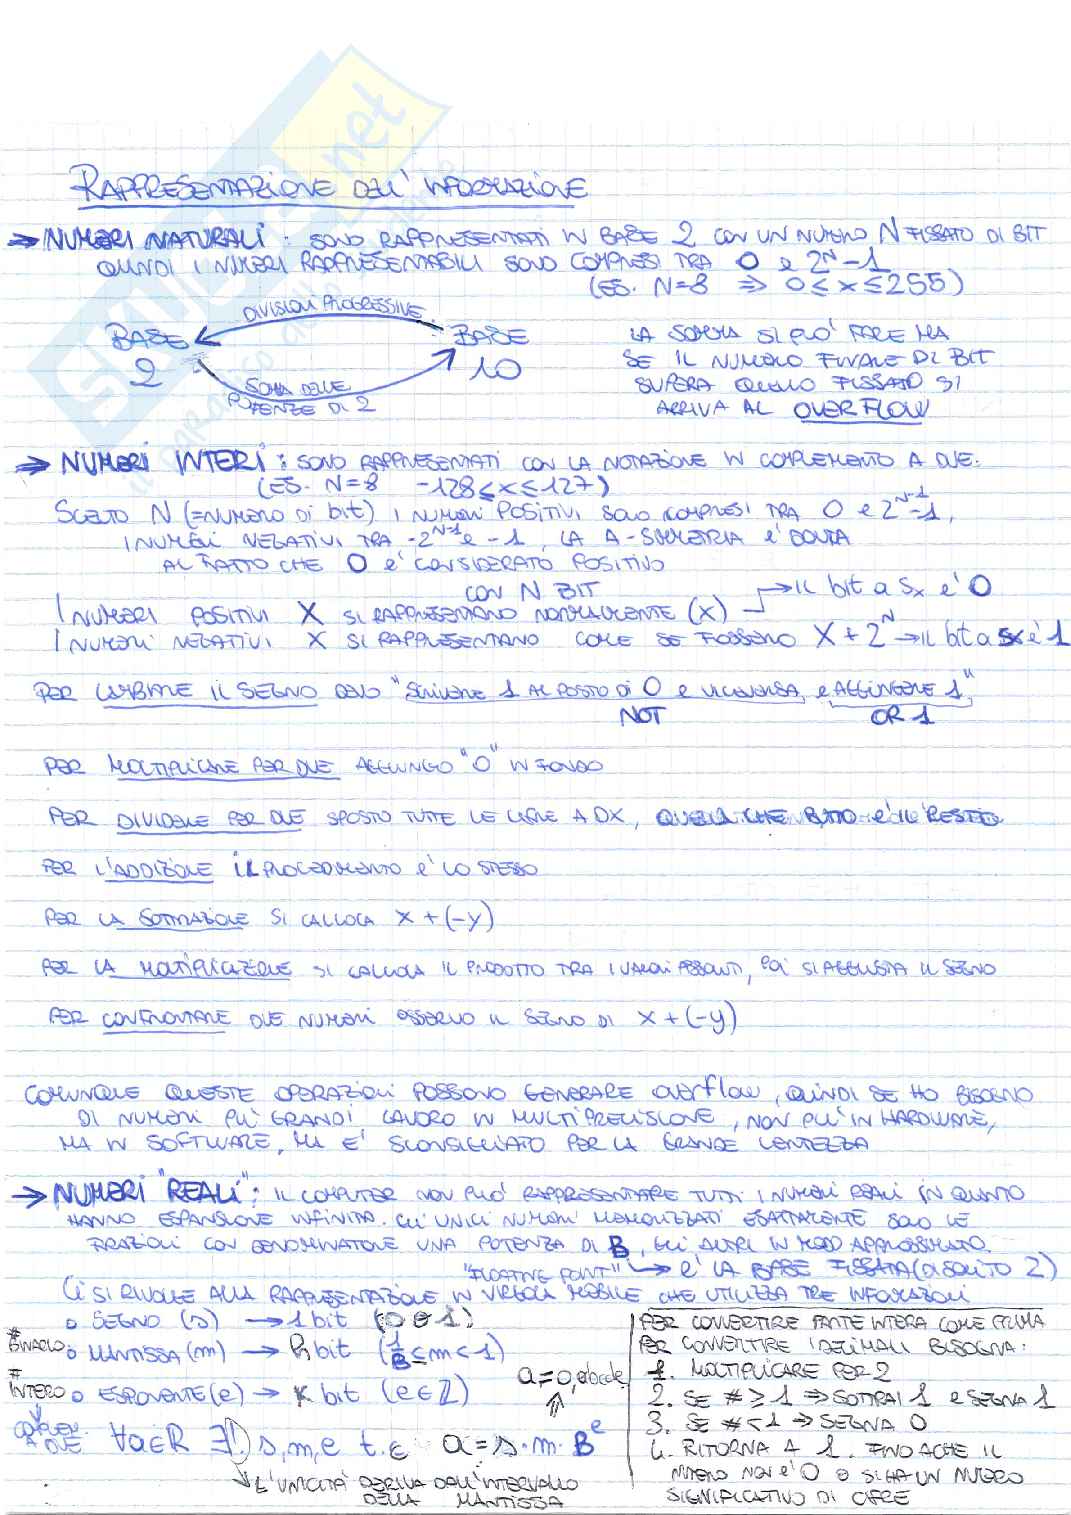 RAPPRESENTAZIONE DELL'INFORMAZIONE
⇒ NUMERI NATURALI: SONO RAPPRESENTATI IN BASE 2 CON UN NUMERO N FISSATO DI BIT
QUINDI I NUMERI RAPPRESENTABILI SONO COMPRESI TRA 0 e 2^N-1
(ES. N=8 ⇒ 0≤x≤255)
DIVISIONI PROGRESSIVE
BASE 2
BASE 10
SOMMA DELLE
POTENZE DI 2
LA SOMMA SI PUO' FARE MA
SE IL NUMERO FINALE DI BIT
SUPERA QUELLO FISSATO SI
ARRIVA AL OVERFLOW
⇒ NUMERI INTERI: SONO RAPPRESENTATI CON LA NOTAZIONE IN COMPLEMENTO A DUE.
(ES. N=8 -128≤x≤127)
SCELTO N (=NUMERO DI bit) I NUMERI POSITIVI SONO COMPRESI TRA 0 e 2^(N-1)-1,
I NUMERI NEGATIVI TRA -2^(N-1) e -1, LA A-SIMMETRIA E' DOVUTA
AL FATTO CHE 0 E' CONSIDERATO POSITIVO
CON N BIT
I NUMERI POSITIVI X SI RAPPRESENTANO NORMALMENTE (X) → IL bit a Sx E' 0
I NUMERI NEGATIVI X SI RAPPRESENTANO COME SE FOSSERO X + 2^N → IL bit a SX E' 1
PER CAMBIARE IL SEGNO DEVO "SCRIVERE 1 AL POSTO DI 0 E VICEVERSA, e AGGIUNGERE 1"
NOT OR 1
PER MOLTIPLICARE PER DUE AGGIUNGO "0" IN FONDO
PER DIVIDERE PER DUE SPOSTO TUTTE LE CIFRE A DX, QUELLA CHE BUTTO E' IL RESTO
PER L'ADDIZIONE IL PROCEDIMENTO E' LO STESSO
PER LA SOTTRAZIONE SI CALCOLA X + (-y)
PER LA MOLTIPLICAZIONE SI CALCOLA IL PRODOTTO TRA I VALORI ASSOLUTI, POI SI AGGIUSTA IL SEGNO
PER CONFRONTARE DUE NUMERI OSSERVO IL SEGNO DI X + (-y)
COMUNQUE QUESTE OPERAZIONI POSSONO GENERARE overflow, QUINDI SE HO BISOGNO
DI NUMERI PIU' GRANDI LAVORO IN MULTIPRECISIONE, NON PIU' IN HARDWARE,
MA IN SOFTWARE, MA E' SCONSIGLIATO PER LA GRANDE LENTEZZA
→ NUMERI "REALI": IL COMPUTER NON PUO' RAPPRESENTARE TUTTI I NUMERI REALI IN QUANTO
HANNO ESPANSIONE INFINITA. GLI UNICI NUMERI MEMORIZZATI ESATTAMENTE SONO LE
FRAZIONI CON DENOMINATORE UNA POTENZA DI B, GLI ALTRI IN MODO APPROSSIMATO.
"FLOATING POINT" → E' LA BASE FISSATA (DI SOLITO 2)
CI SI RIVOLGE ALLA RAPPRESENTAZIONE IN VIRGOLA MOBILE CHE UTILIZZA TRE INFORMAZIONI
o SEGNO (s) → 1 bit (0 o 1)
# BINARIO o MANTISSA (m) → h bit (1/B ≤ m < 1)
# INTERO o ESPONENTE (e) → K bit (e∈ℤ)
a=0,abcde
COMPLEM. A DUE
∀a∈R ∃! s,m,e t.c. a = s·m·B^e
L'UNICITA' DERIVA DALL'INTERVALLO
DELLA MANTISSA
PER CONVERTIRE PARTE INTERA COME PRIMA
PER CONVERTIRE I DECIMALI BISOGNA:
1. MOLTIPLICARE PER 2
2. SE # ≥ 1 ⇒ SOTTRAI 1 e SEGNA 1
3. SE # < 1 ⇒ SEGNA 0
4. RITORNA A 1. FINO A CHE IL
NUMERO NON E' 0 O SI HA UN NUMERO
SIGNIFICATIVO DI CIFRE